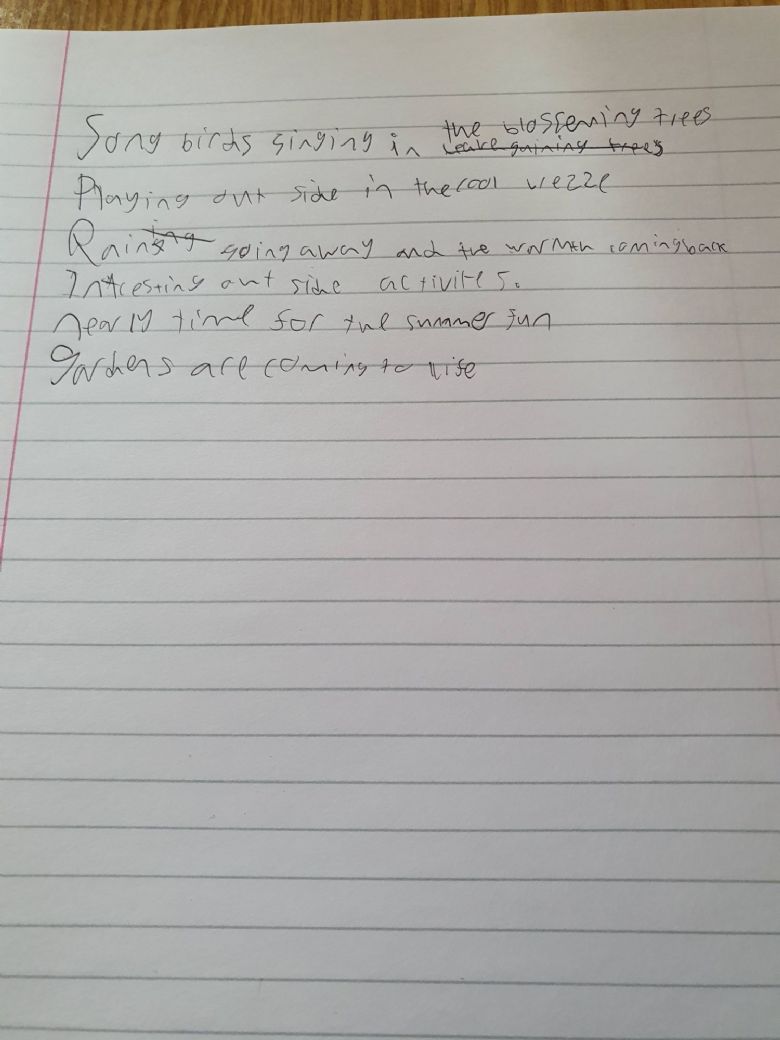 Song birds singing in the blosseming trees
Playing out side in the cool vrezze
Rain going away and the warmth coming back
Intresting out side activites.
nearly time for the summer fun
gardens are coming to life